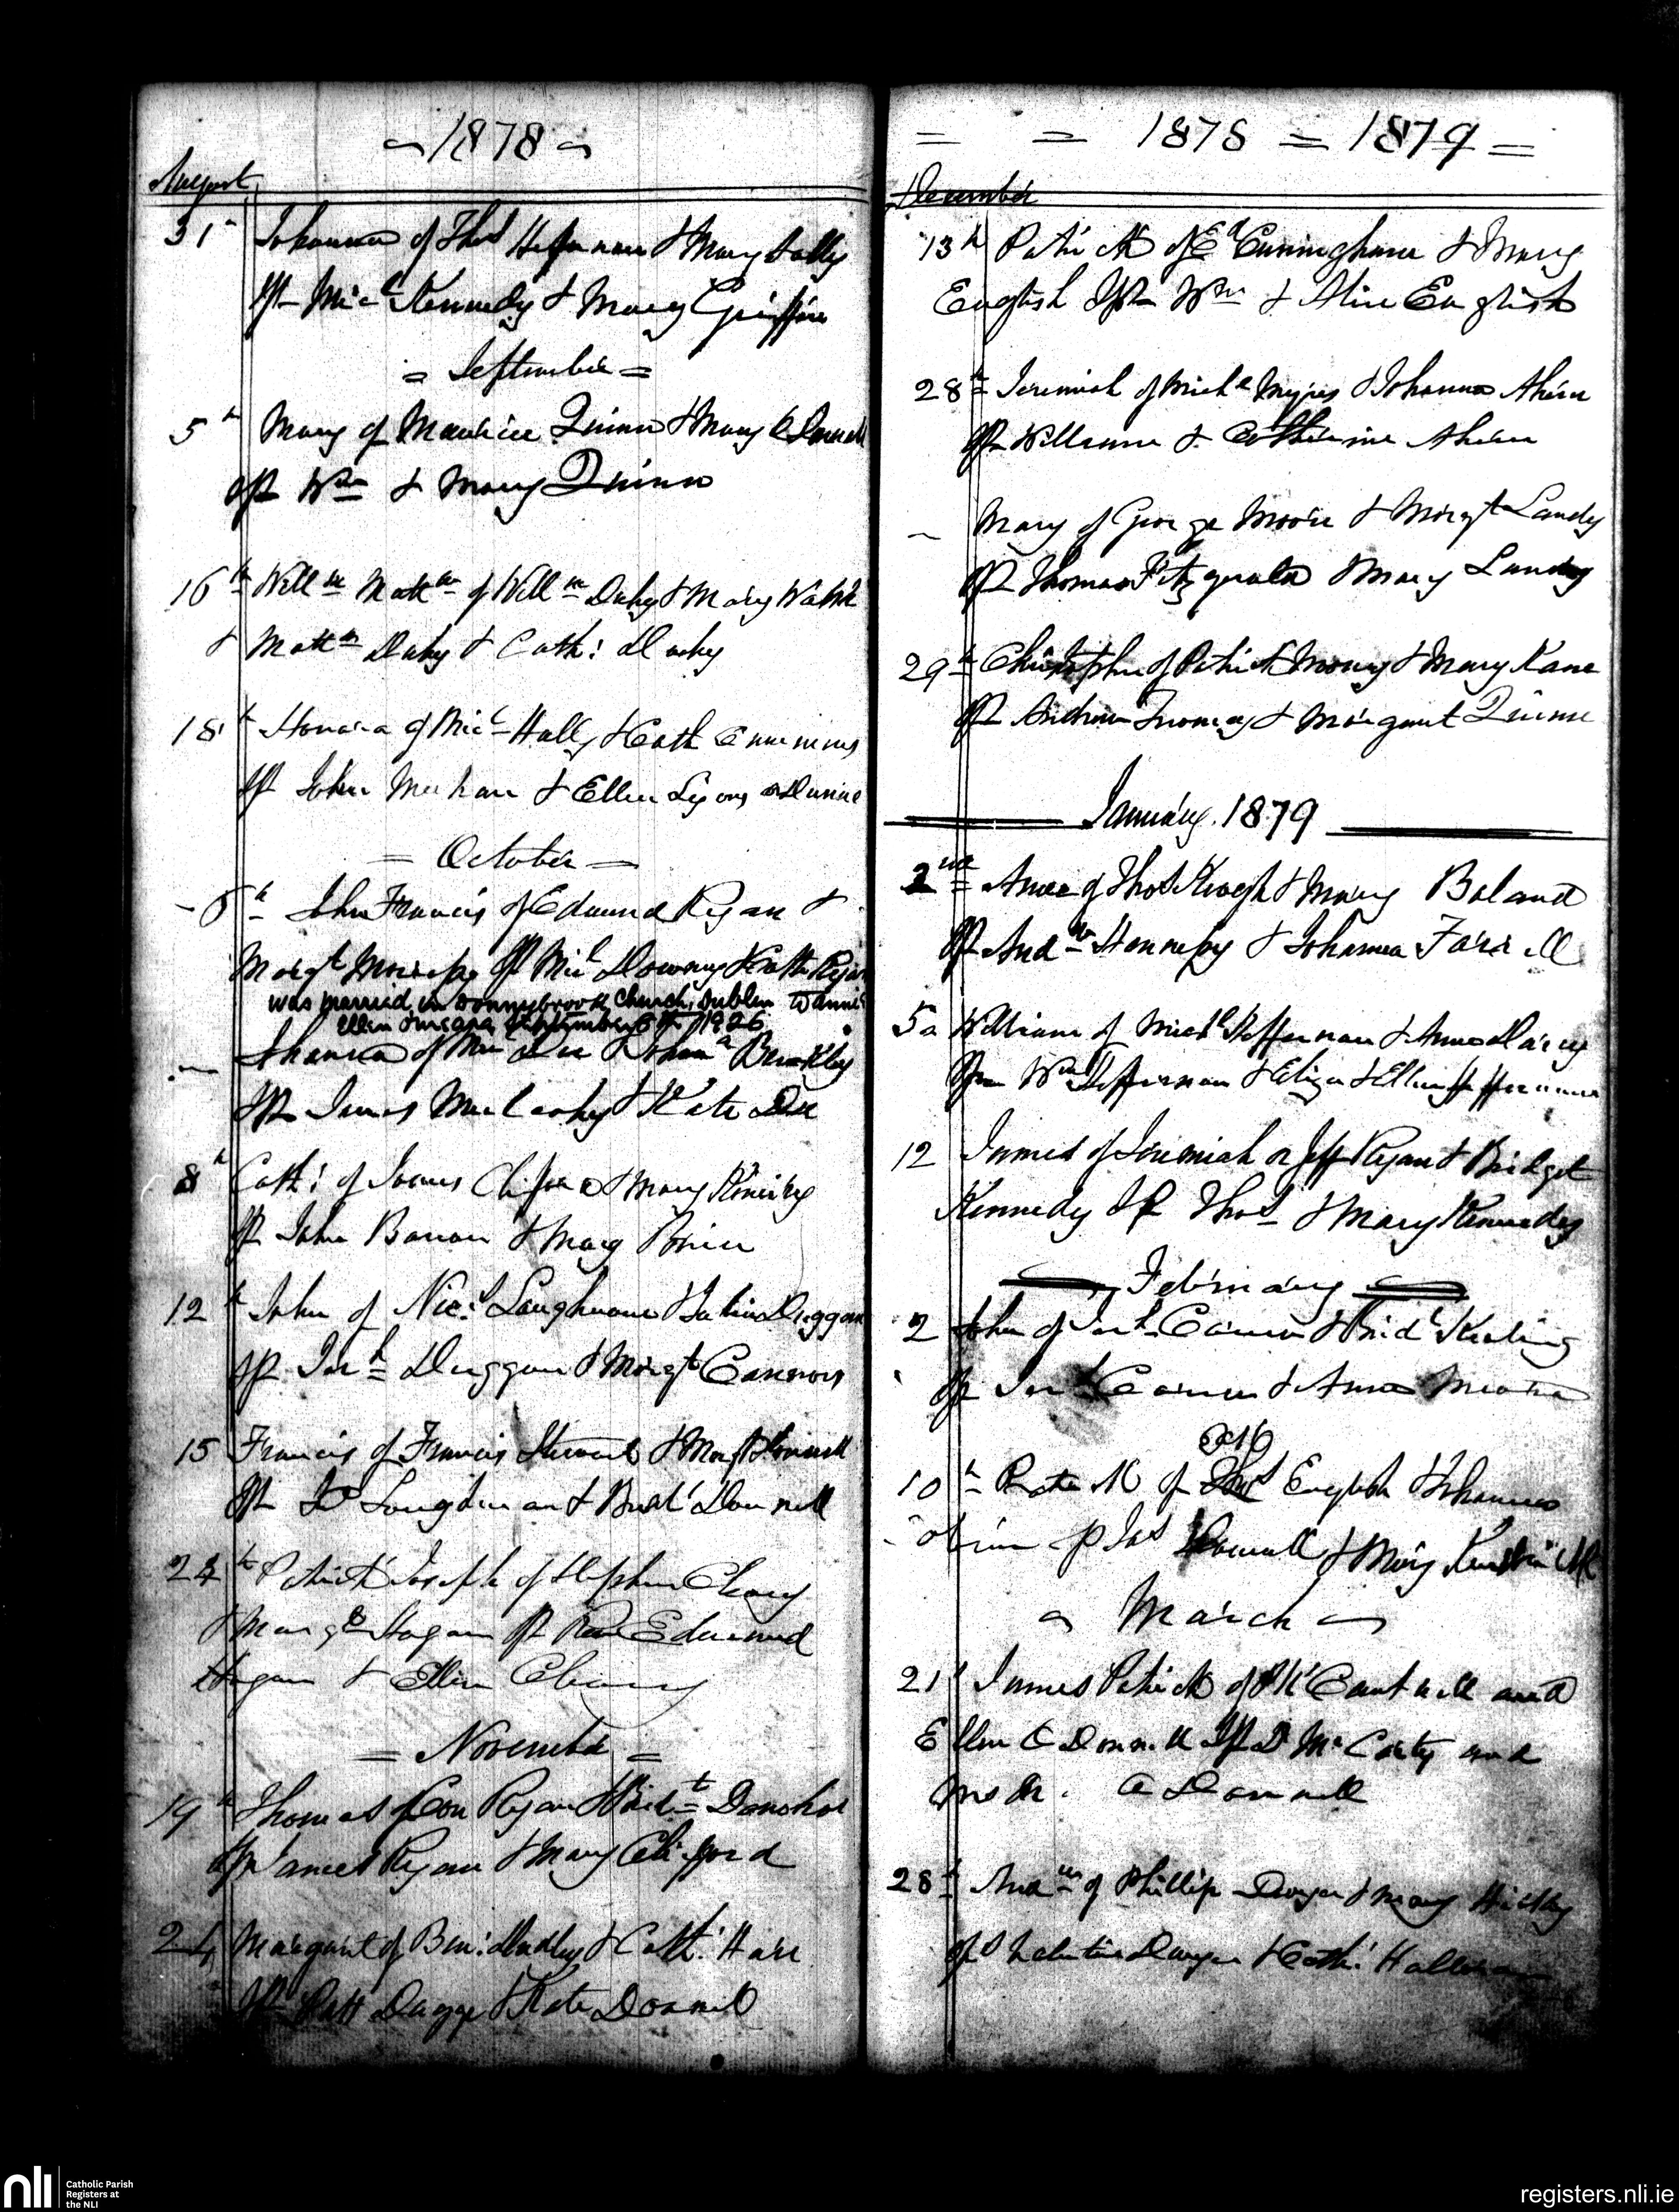 1878
August
31 Johanna of Thos Heffernan & Mary Lally
Sps Micl Kennedy & Mary Griffin
= September =
5th Mary of Maurice Quinn & Mary O Donnell
Sps Wm & Mary Quinn
16th Willm Mattw of Willm Dahy & Mary Walsh
& Mattw Dahy & Cath: Dahy
18th Honora of Micl Hally & Cath Cummins
Sps John Meehan & Ellen Lyons Dunne
= October =
6th John Francis of Edmund Ryan &
Margt Morrissy Sps Micl Downey & Cath Ryan
was married in Donnybrook Church, Dublin to Annie
Ellen September 6th 1926
Johanna of Dee & Johana Buckley
Sps James McCarthy & Kate Dee
8th Cath: of James & Mary
Sps John Baron & Mary Brien
12th John of Nics Loughnane & Julia Duggan
Sps Jerh Duggan & Margt Connors
15 Francis of Francis Steward & Margt Donnell
Sps & Brid Donnell
24th Patrick Joseph of Stephen Cleary
& Margt Hogan Sps Edmund
Hogan & Ellen Cleary
= November =
19th Thomas of Con Ryan & Bridt Donohoe
Sps James Ryan & Mary Clifford
24 Margaret of Ben: Dudley & Cath: Hare
Sps Patt & Kate Donnell
= = 1878 = 1879 =
December
13th Patrick of Ed Cuninghane & Mary
English Sps Wm & Alice English
28th Jeremiah of Michl Myres & Johanna Ahern
Sps William & Catherine Ahern
Mary of George Moore & Margt Landy
Sps Thomas Fitzgerald & Mary Landy
29th Christopher of Patrick & Mary Kane
Sps Andrew & Margaret Quinn
January. 1879
2nd Anne of Thos Keogh & Mary Boland
Sps Andw Hennessy & Johanna Farrell
5 William of Michl Heffernan & Anne Darcy
Sps Wm Heffernan & Eliza & Ellen Heffernan
12 James of Jeremiah or Jeff Ryan & Bridget
Kennedy Sps Thos & Mary Kennedy
February
2 John of Jerh & Bridt Keating
Sps Jerh & Anne
10th Patrick of English & Johanna
Obrien Sp Jas & Mary
March
21st James Patrick of Pk Cantwell and
Ellen O Donnell Sps D McCarty and
Mrs M. O Donnell
28th Andw of Phillip Dwyer & Mary Hickey
Sps Valentine Dwyer & Cath:
nli
Catholic Parish
Registers at
the NLI
registers.nli.ie